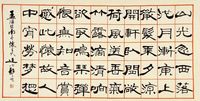 山光忽西落
池月漸東上
散髮乘夕涼
開軒臥閑敞
荷風送香氣
竹露滴清響
欲取鳴琴彈
恨無知音賞
感此懷故人
中宵勞夢想